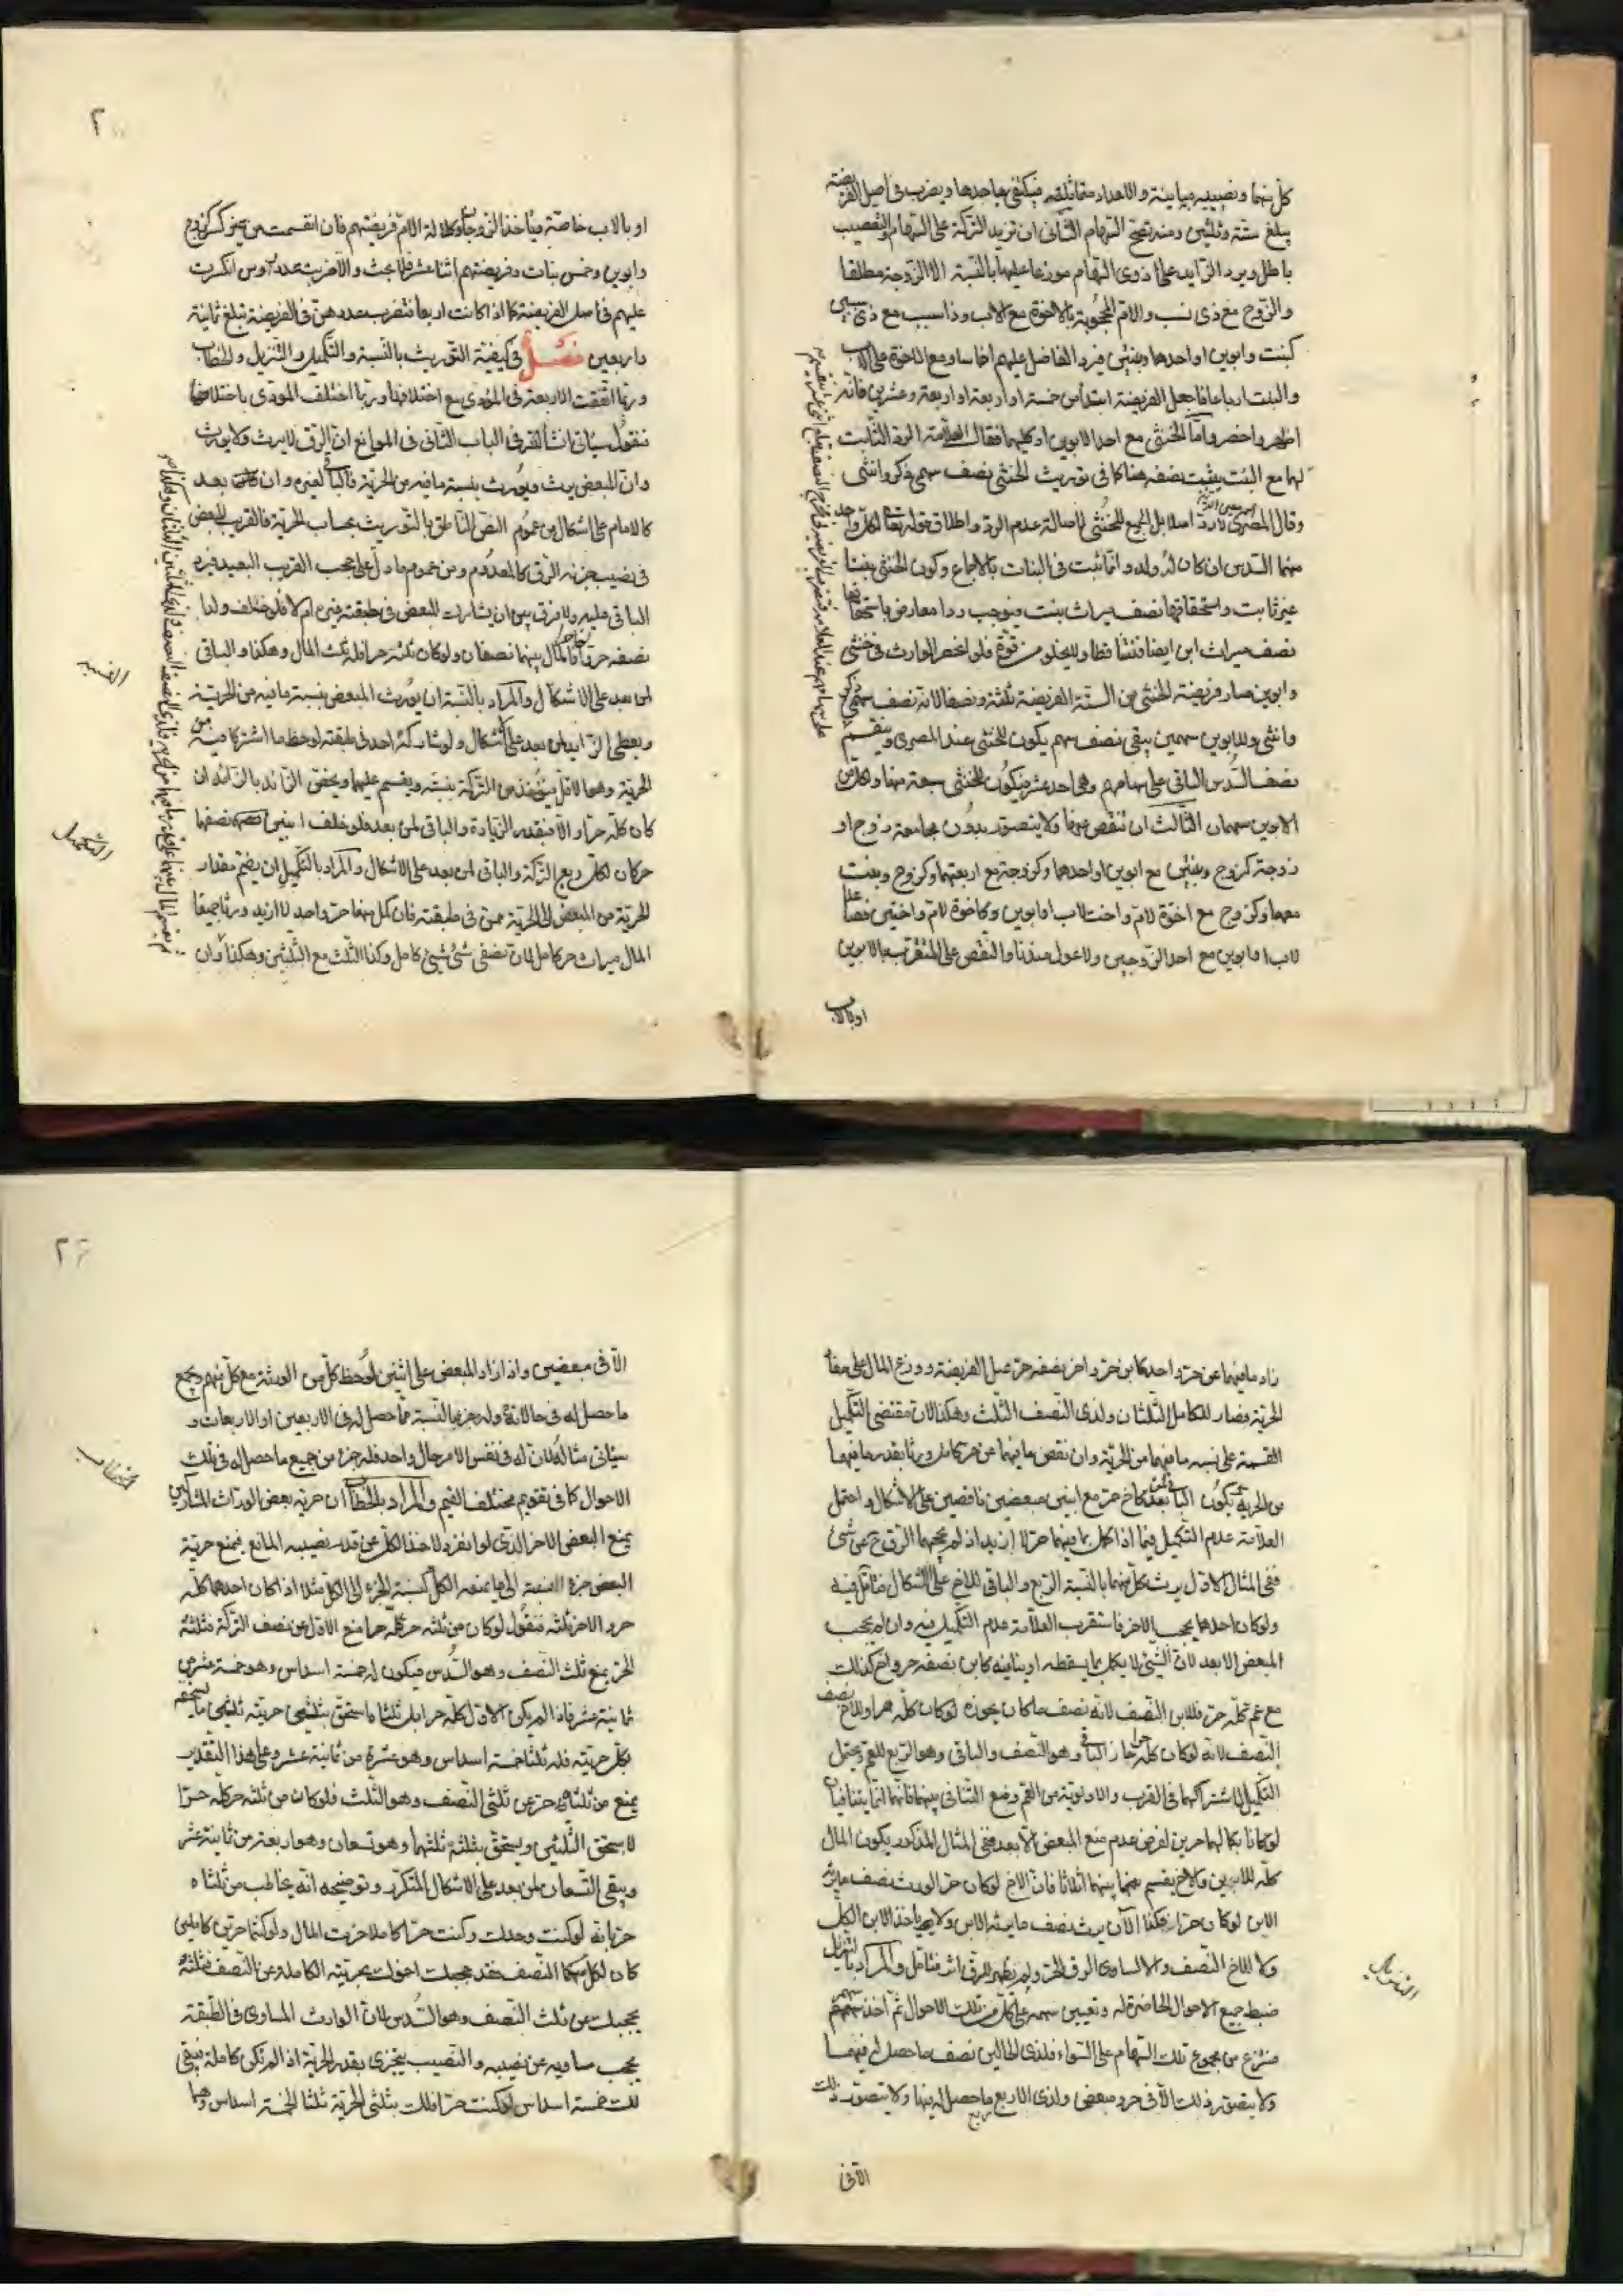 كل منهما ونصيبه مباينة والاعداد متماثلة فيكتفى باحدها ويضرب فى اصل الفريضة
يبلغ ستة وثلثين ومنه تصح السهام الثانى ان تزيد التركة على السهام والتعصيب
باطل ويرد الزايد على ذوى السهام موزعا عليها بالنسبة الا الزوجة مطلقا
والزوج مع ذى نسب والام المحجوبة بالاخوة مع الاب وذا سبب مع ذى سببين
كبنت وابوين او احدهما وبنتين فيرد الفاضل عليهم اخماسا ومع الاخوة على الاب
والبنت ارباعا فاجعل الفريضة ابتداء من خمسة او اربعة او اربعة وعشرين فانه
اظهر واخصر واما الخنثى مع احد الابوين او كليهما فقال العلامة الرد الثابت
لهما مع البنت يثبت نصفه هنا كما فى توريث الخنثى نصف سهمى ذكر وانثى
وقال المصرى لا رد اصلا بل الجميع للخنثى لاصالة عدم الرد واطلاق قوله تعالى لكل واحد
منهما السدس ان كان له ولد وانما ثبت فى البنات بالاجماع وكون الخنثى بنتا
غير ثابت واستحقاقها نصف ميراث بنت فيوجب ردا معارض باستحقاقها
نصف ميراث ابن ايضا فتساقطا ولا يخلو من قوة فلو انحصر الوارث فى خنثى
وابوين صار فريضة الخنثى من الستة الفريضة ثلثة ونصفا لانه نصف سهمى ذكر
وانثى وللابوين سهمين يبقى نصف سهم يكون للخنثى عند المصرى وينقسم
نصف السدس الباقى على سهامهم وهى احد عشر فيكون للخنثى سبعة منها ولكل من
الابوين سهمان الثالث ان تنقص عنها ولا يتصور بدون مجامعة زوج او
زوجة كزوج وبنتين مع ابوين او احدهما وكزوجة مع اربعتهم وكزوج وبنت
معهما وكزوج مع اخوة لام واخت لاب او ابوين وكاخوة لام واختين فصاعدا
لاب او ابوين مع احد الزوجين ولا عول عندنا والنقص على المتقرب بالابوين
او بالاب
٢
او بالاب خاصة فيأخذ الزوجان وكلالة الام فريضتهم فان انقسمت من غير كسر كزوج
وابوين وخمس بنات وفريضتهم اثنا عشر فلا بحث والا ضربت عدد رؤس انكسرت
عليهم فى اصل الفريضة كما اذا كانت اربعا فتضرب عددهن فى الفريضة تبلغ ثمانية
واربعين فصل فى كيفية التوريث بالنسبة والتكميل والتنزيل والخطاب
وربما اتفقت الاربعة فى المؤدى مع اختلافها وربما اختلف المودى باختلافها
فنقول سياتى انشأ الله فى الباب الثانى فى الموانع ان الرق لا يرث ولا يورث
وان المبعض يرث ويورث بنسبة ما فيه من الحرية فالباقى لغيره وان كان بعد
كالامام على اشكال من عموم النص الناطق بالتوريث بحساب الحرية فالقريب المبعض
فى نصيب جزئه الرق كالمعدوم ومن عموم ما دل على حجب القريب البعيد فيرد
الباقى عليه ولا فرق بين ان يشارك المبعض فى طبقته غيره ام لا فلو خلف ولدا
نصفه حر واخا حرا فالمال بينهما نصفان ولو كان ثلثه حرا فله ثلث المال وهكذا والباقى
لمن بعد على الاشكال والمراد بالنسبة ان يورث المبعض بنسبة ما فيه من الحرية
ويعطى الزايد لمن بعد على اشكال ولو شاركه احد فى طبقته لوحظ ما اشتركا فيه من
الحرية وهو الاقل فيؤخذ من التركة بنسبته ويقسم عليهما ويختص الزائد بالزائد ان
كان كله حرا والا فبقدر الزيادة والباقى لمن بعد فلو خلف ابنين نصفهما
حر كان لكل ربع التركة والباقى لمن بعد على الاشكال والمراد بالتكميل ان يضم مقدار
الحرية من المبعض الى الحرية ممن فى طبقته فان كمل منهما حر واحد لا ازيد ورثا جميعا
المال ميراث حر كامل لان نصفى شئ شئ كامل وكذا الثلث مع الثلثين وهكذا وان
النسبة
التكميل
زاد ما فيهما عن حر واحد كابن حر واخر نصفه حر عمل الفريضة ووزع المال على مقدار
الحرية فصار للكامل الثلثان ولذى النصف الثلث وهكذا لان مقتضى التكميل
القسمة على نسبة ما فيهما من الحرية وان نقص ما فيهما عن حر كامل ورثا بقدر ما فيهما
من الحرية ويكون الباقى لمن بعد كاخ حر مع ابنين مبعضين ناقصين على الاشكال واحتمل
العلامة عدم التكميل فيما اذا كمل بما فيهما حر لا ازيد اذ لم يحجبهما الرق ح عن شئ
ففى المثال الاول يرث كل منهما بالنسبة الربع والباقى للاخ على الاشكال فتأمل فيه
ولو كان احدهما يحجب الاخر فاستقرب العلامة عدم التكميل فيه وان لم يحجب
المبعض الابعد لان الشئ لا يكمل بما يسقطه او ينافيه كابن نصفه حر واخ كذلك
مع عم كله حر فللابن النصف لانه نصف ما كان يحوزه لو كان كله حرا وللاخ نصف
النصف لانه لو كان كله حرا حاز الباقى وهو النصف والباقى وهو الربع للعم ويحتمل
التكميل لاشتراكهما فى القرب والاولوية من العم ومنع التنافى بينهما فانهما انما يتنافيان
لو كانا بكمالهما حرين لفرض عدم منع المبعض الابعد ففى المثال المذكور يكون المال
كله للابن والاخ يقسم بينهما اثلاثا فان الاخ لو كان حرا لورث نصف ما يرثه
الابن لو كان حرا فكذا الآن يرث نصف ما يرثه الابن ولا يأخذ الابن الكل
ولا للاخ النصف والا لساوى الرق الحر ولم يظهر للرق اثر فتأمل والمراد بالتنزيل
ضبط جميع الاحوال الحاضرة له وتعيين سهمه على كل من تلك الاحوال ثم اخذ سهم
منتزع من مجموع تلك السهام على السواء فلذى الحالين نصف ما حصل له فيهما
ولا يتصور ذلك الا فى حر ومبعض ولذى الاربع ربع ما حصل له فيها ولا يتصور ذلك
الا فى
التنزيل
٢٦
الا فى مبعضين واذا زاد المبعض على اثنين لوحظ كل من الورثة مع كل منهم ويجمع
ما حصل له فى حالاته وله جزء بالنسبة مما حصل له فى الاربعين او الاربعات و
سياتى مثاله لان له فى نفس الامر حال واحد فله جزء من جميع ما حصل له فى تلك
الاحوال كما فى تقويم مختلف القيم والمراد بالخطاب ان حرية بعض الوراث المشاركين
يمنع البعض الاخر الذى لو انفرد لاخذ الكل عن قدر نصيبه المانع فيمنع حرية
البعض جزء النسبة الى ما يمنعه الكل كنسبة الجزء الى الكل مثلا اذا كان احدهما كله
حر والاخر ثلثه فنقول لو كان من ثلثه حر كله حرا منع الاول عن نصف التركة فثلثه
الحر يمنع ثلث النصف وهو السدس فيكون له خمسة اسداس وهو خمسة عشر من
ثمانية عشر فاذا لم يكن الاول كله حرا بل ثلثاه استحق بثلثى حريته ثلثى ما يستحقه
بكل حريته فله ثلثا خمسة اسداس وهو عشرة من ثمانية عشر وعلى هذا التقدير
يمنع من ثلثاه حر عن ثلثى النصف وهو الثلث فلو كان من ثلثه حر كله حرا
لاستحق الثلثين ويستحق بثلثه ثلثهما وهو تسعان وهو اربعة من ثمانية عشر
ويبقى التسعان لمن بعد على الاشكال المتكرر وتوضيحه انه يخاطب من ثلثاه
حر بانه لو كنت وحدك وكنت حرا كاملا حزت المال ولو كنتما حرين كاملين
كان لكل منكما النصف فقد حجبك اخوك بحريته الكاملة عن النصف فثلثه
يحجبك عن ثلث النصف وهو السدس لان الوارث المساوى فى الطبقة
يحجب مساويه عن نصيبه والنصيب يتجزى بقدر الحرية اذا لم تكن كاملة فيبقى
لك خمسة اسداس لو كنت حرا فلك بثلثى الحرية ثلثا الخمسة اسداس وهما
الخطاب